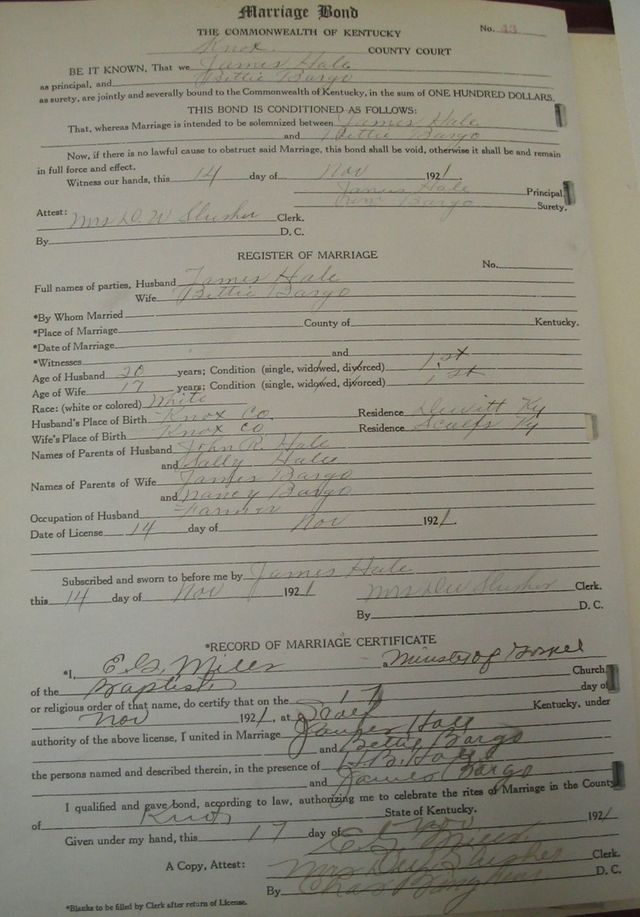 Marriage Bond
THE COMMONWEALTH OF KENTUCKY No. 43
Knox COUNTY COURT
BE IT KNOWN, That we James Hale
as principal, and Bettie Bargo
as surety, are jointly and severally bound to the Commonwealth of Kentucky, in the sum of ONE HUNDRED DOLLARS.
THIS BOND IS CONDITIONED AS FOLLOWS:
That, whereas Marriage is intended to be solemnized between James Hale
and Bettie Bargo
Now, if there is no lawful cause to obstruct said Marriage, this bond shall be void, otherwise it shall be and remain
in full force and effect.
Witness our hands, this 14 day of Nov 1921.
James Hale Principal
Bargo Surety.
Attest: Mrs D. W Slusher Clerk.
By D. C.
REGISTER OF MARRIAGE
No.
Full names of parties, Husband James Hale
Wife Bettie Bargo
*By Whom Married
*Place of Marriage County of Kentucky.
*Date of Marriage
*Witnesses and
Age of Husband 20 years; Condition (single, widowed, divorced) 1st
Age of Wife 17 years; Condition (single, widowed, divorced) 1st
Race: (white or colored) White
Husband's Place of Birth Knox Co Residence Dewitt Ky
Wife's Place of Birth Knox Co Residence Scalf Ky
Names of Parents of Husband John R. Hale
and Sally Hale
Names of Parents of Wife James Bargo
and Nancy Bargo
Occupation of Husband Farmer
Date of License 14 day of Nov 1921.
Subscribed and sworn to before me by James Hale
this 14 day of Nov 1921 Mrs D W Slusher Clerk.
By D. C.
*RECORD OF MARRIAGE CERTIFICATE
*I, E. G. Mills a Minister of Gospel
of the Baptist Church,
or religious order of that name, do certify that on the 17 day of
Nov 1921, at Scalf Kentucky, under
authority of the above license, I united in Marriage James Hale
and Bettie Bargo
the persons named and described therein, in the presence of B. Hale
and James Bargo
I qualified and gave bond, according to law, authorizing me to celebrate the rites of Marriage in the County
of Knox State of Kentucky.
Given under my hand, this 17 day of Nov 1921
E. G. Mills
A Copy, Attest: Mrs D W Slusher Clerk.
By Chas D. C.
*Blanks to be filled by Clerk after return of License.